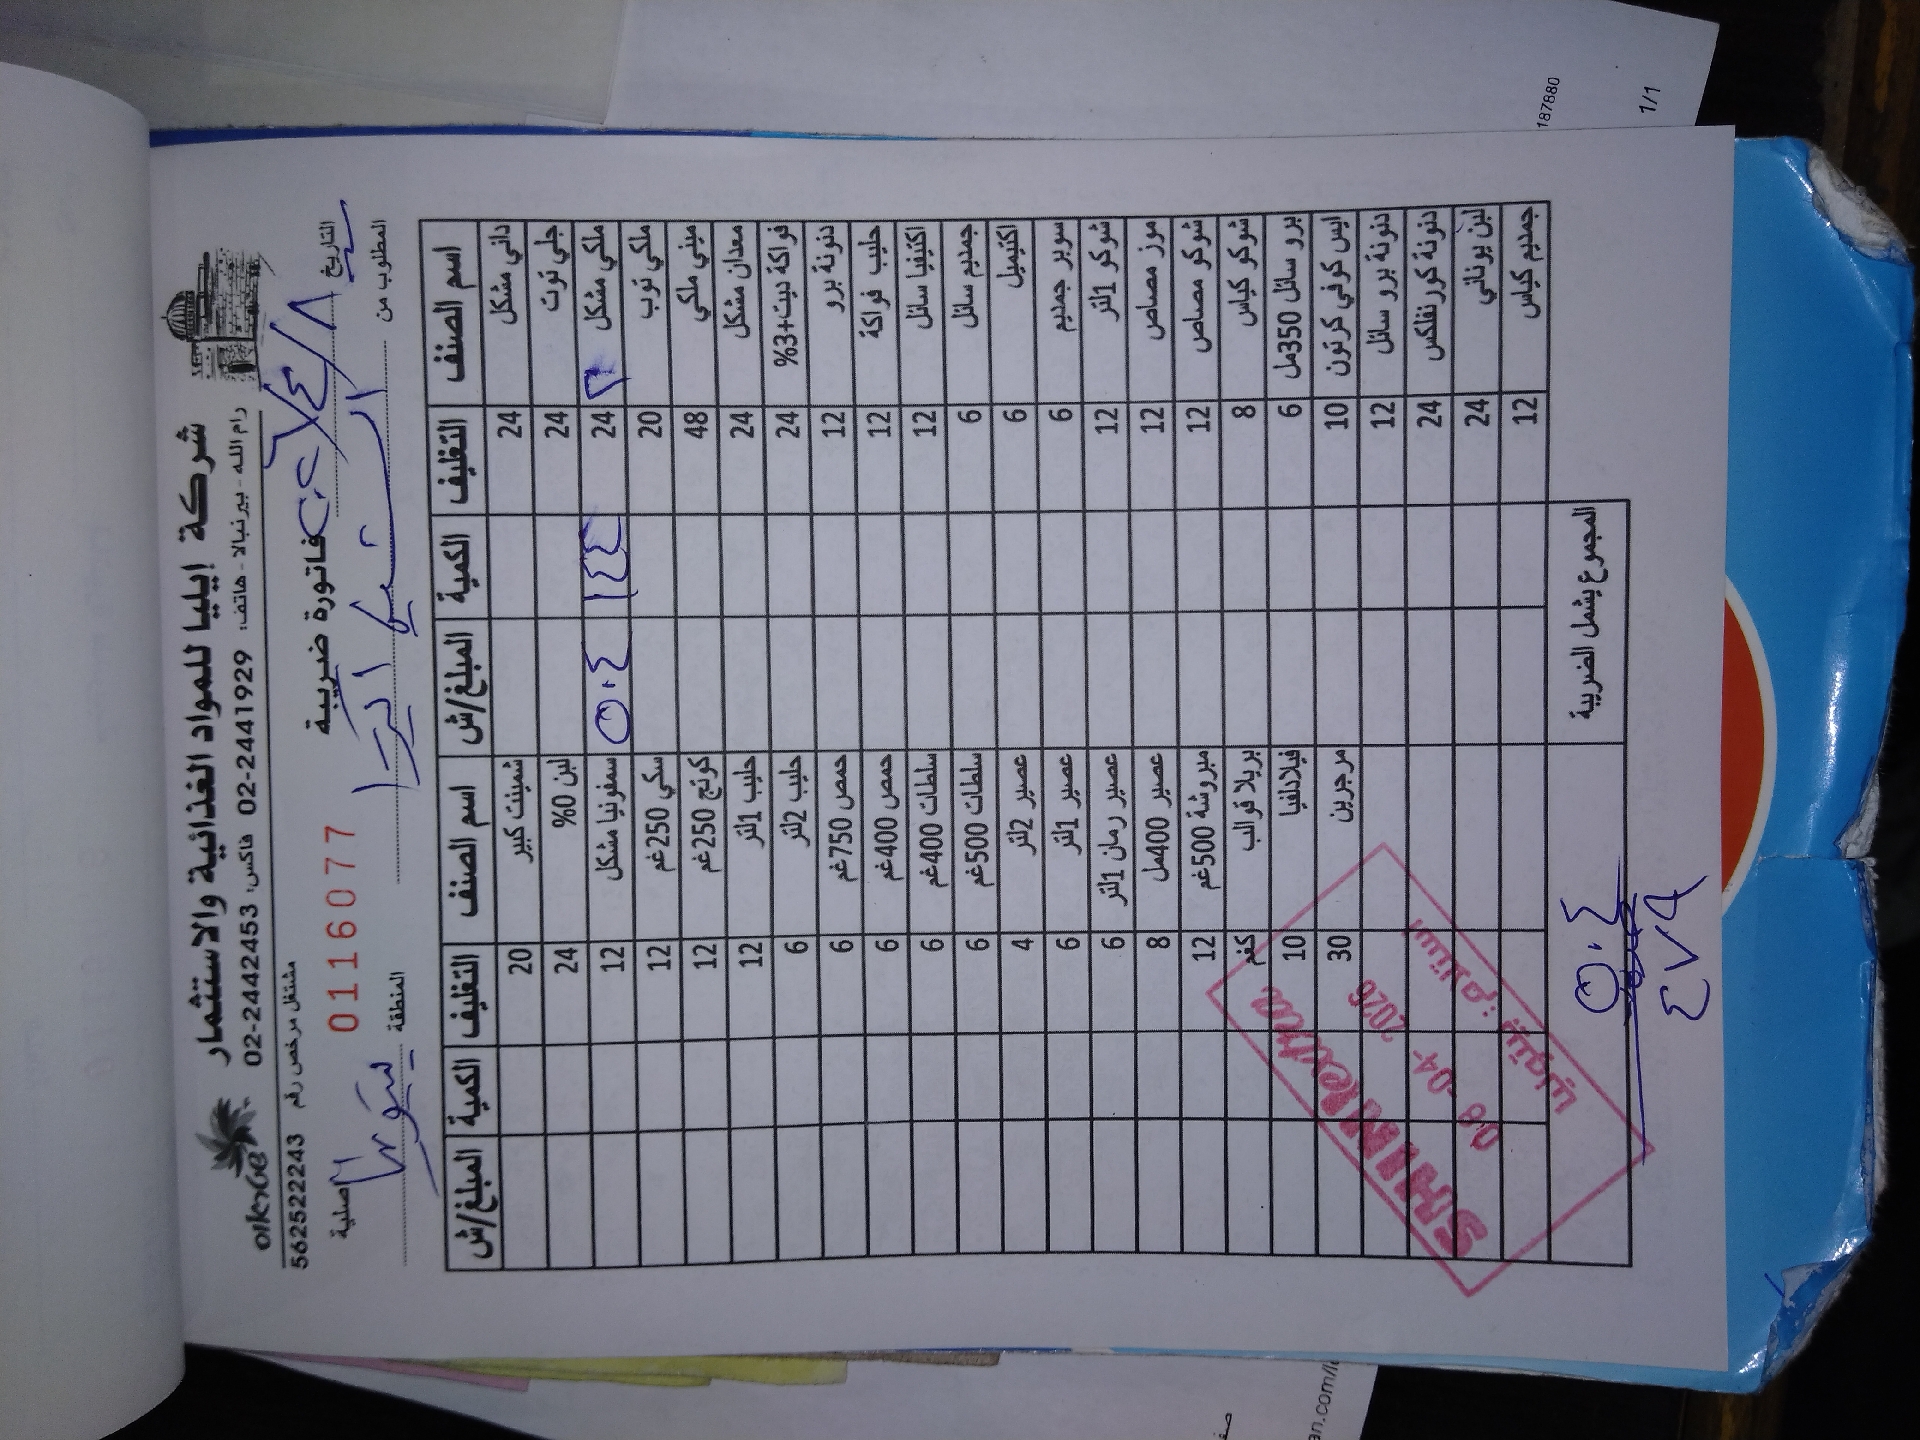 شركة ايليا للمواد الغذائية والاستثمار
رام الله - بيرنبالا - هاتف: 02-2441929 فاكس: 02-2442453
مشتغل مرخص رقم 562522243
فاتورة ضريبة 0116077
التاريخ ٨/٤/ اصلية
المطلوب من المنطقة
اسم الصنف التغليف الكمية المبلغ/ش اسم الصنف التغليف الكمية المبلغ/ش
داني مشكل 24 شمينت كبير 20
جلي توت 24 لبن 0% 24
ملكي مشكل 24 ١٤٤ ٥٠٤ سمفونيا مشكل 12
ملكي توب 20 سكي 250غم 12
ميني ملكي 48 كوتج 250غم 12
معدان مشكل 24 حليب 1لتر 12
فواكة ديت+3% 24 حليب 2لتر 6
دنونة برو 12 حمص 750غم 6
حليب فواكة 12 حمص 400غم 6
اكتيفيا سائل 12 سلطات 400غم 6
جمديم سائل 6 سلطات 500غم 6
اكتيميل 6 عصير 2لتر 4
سوبر جمديم 6 عصير 1لتر 6
شوكو 1لتر 12 عصير رمان 1لتر 6
موز مصاص 12 عصير 400مل 8
شوكو مصاص 12 مبروشة 500غم 12
شوكو كياس 8 بريلا قوالب كغم
برو سائل 350مل 6 فيلادلفيا 10
ايس كوفي كرتون 10 مرجرين 30
دنونة برو سائل 12
دنونة كورنفلكس 24
لبن يوناني 24
جمديم كياس 12
المجموع يشمل الضريبة ٥٠٤
٤٧٩
08 -04- 2026
187880
1/1
an.com/